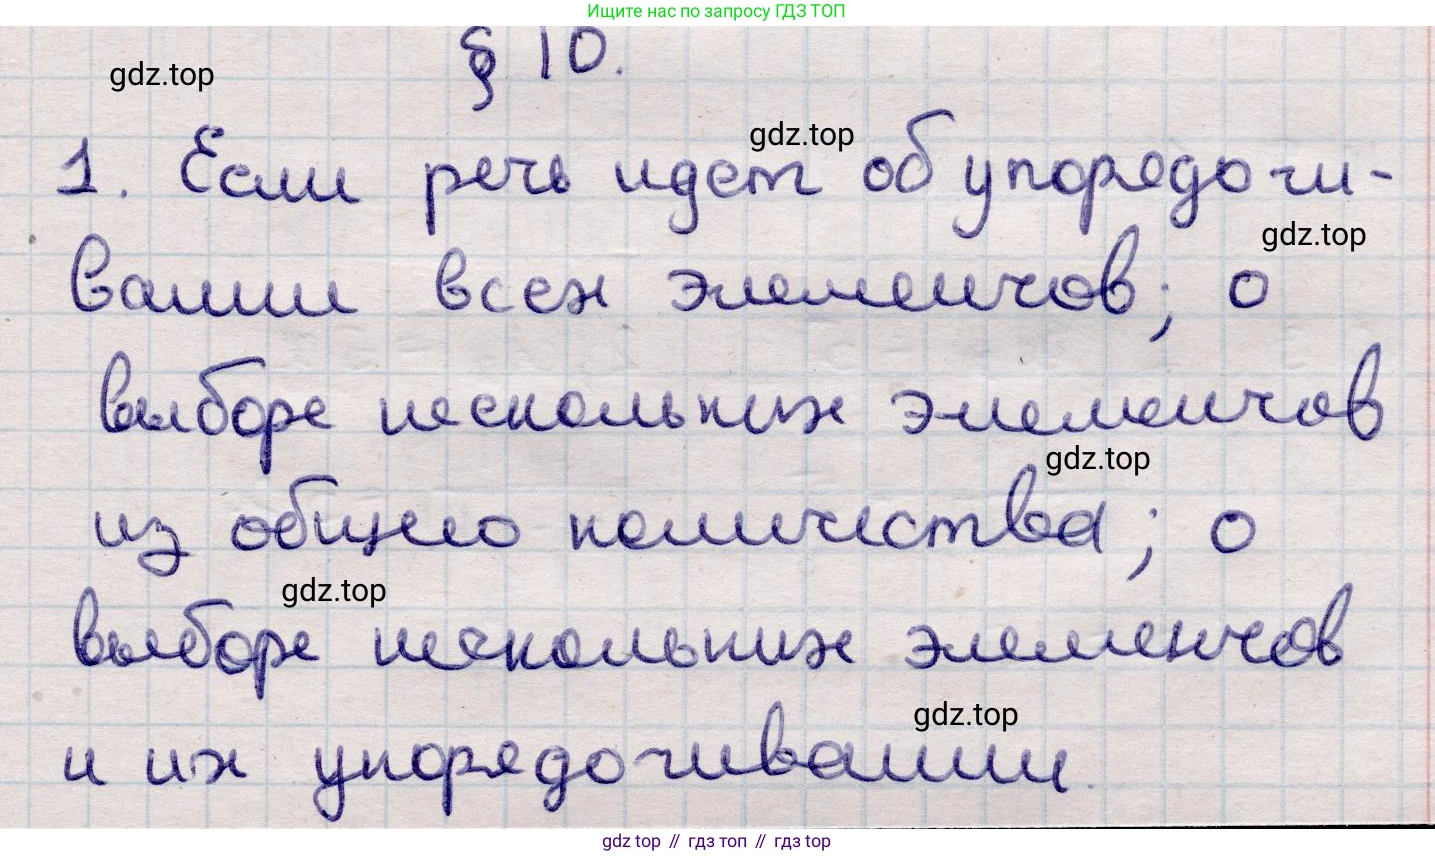 Ищите нас по запросу ГДЗ ТОП
§ 10.
gdz.top
gdz.top
1. Если речь идет об упорядочи-
gdz.top
вании всех элементов; о
выборе нескольких элементов
gdz.top
из общего количества; о
gdz.top
выборе нескольких элементов
gdz.top
и их упорядочивании.
gdz top // гдз топ // гдз top